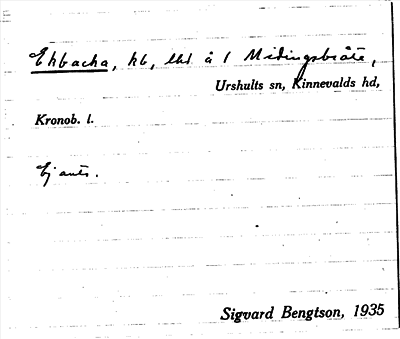 Ekbacka, hb, lht å 1 Midingsbråte,
Urshults sn, Kinnevalds hd,
Kronob. l.
Ej ants.
Sigvard Bengtson, 1935